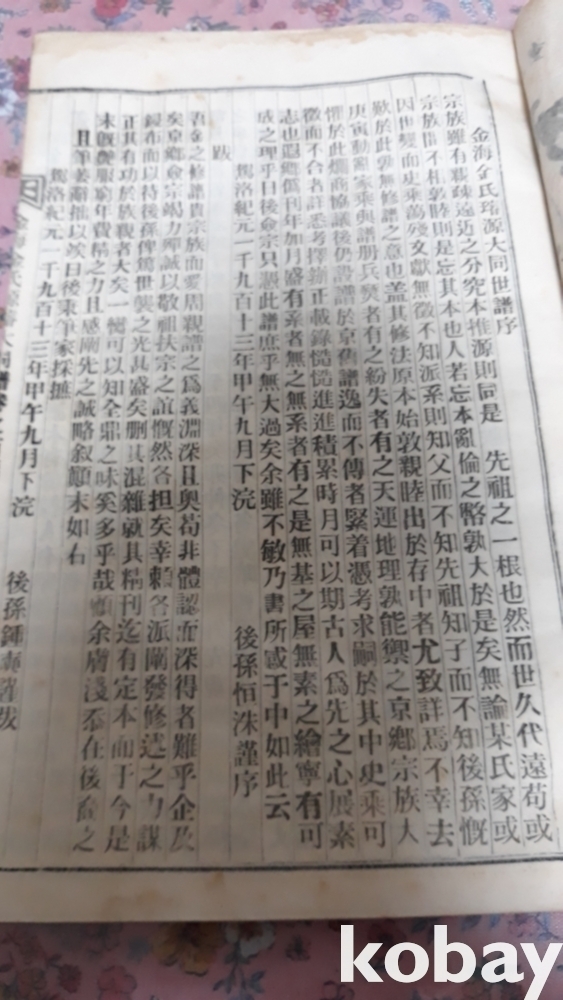 金海金氏璿源大同世譜序
宗族雖有親疎遠近之分究本推源則同是 先祖之一根也然而世久代遠苟或
宗族間不相敦睦則是忘其本也人若忘本亂倫之弊孰大於是矣無論某氏家或
因世變而史乘萬殘文獻無徵不知派系則知父而不知先祖知子而不知後孫慨
歎於此無修譜之意也盖其修法原本始敦親睦出於存中者尤致詳焉不幸去
庚寅動亂家乘與譜册兵燹者有之紛失者有之天運地理孰能禦之京鄕宗族大
懼於此爛商協議後仍設譜于京舊譜逸而不傳者緊着憑考求嗣於其中史乘可
徵而不合者詳悉考擇斷正載錄憢憢進進積累時月可以期古人爲先之心展素
志也遐鄕僞刊年加月盛有系者無之無系者有之是無基之屋無素之繪寧有可
成之理乎日後僉宗只憑此譜庶乎無大過矣余雖不敏乃書所感于中如此云
駕洛紀元一千九百十三年甲午九月下浣 後孫恒洙謹序
跋
吾金之修譜貴宗族而愛周親譜之爲義淵深且奧苟非體認而深得者難乎企及
矣京鄕僉宗竭力殫誠以敬祖扶宗之誼慨然各担矣幸賴各派闡發修述之力謀
鋟布而以待後孫俾篤世襲之光其盛矣删其混雜就其精刊迄有定本而于今是
正其有功於族親者大矣一臠可以知全鼎之味奚多乎哉顧余膚淺忝在後裔之
末飯蔬服窮年費精之力且感爲先之誠略叙顚末如右
且筆姜辭拙以竢日後秉筆家採摭
駕洛紀元一千九百十三年甲午九月下浣 後孫鍾 謹跋